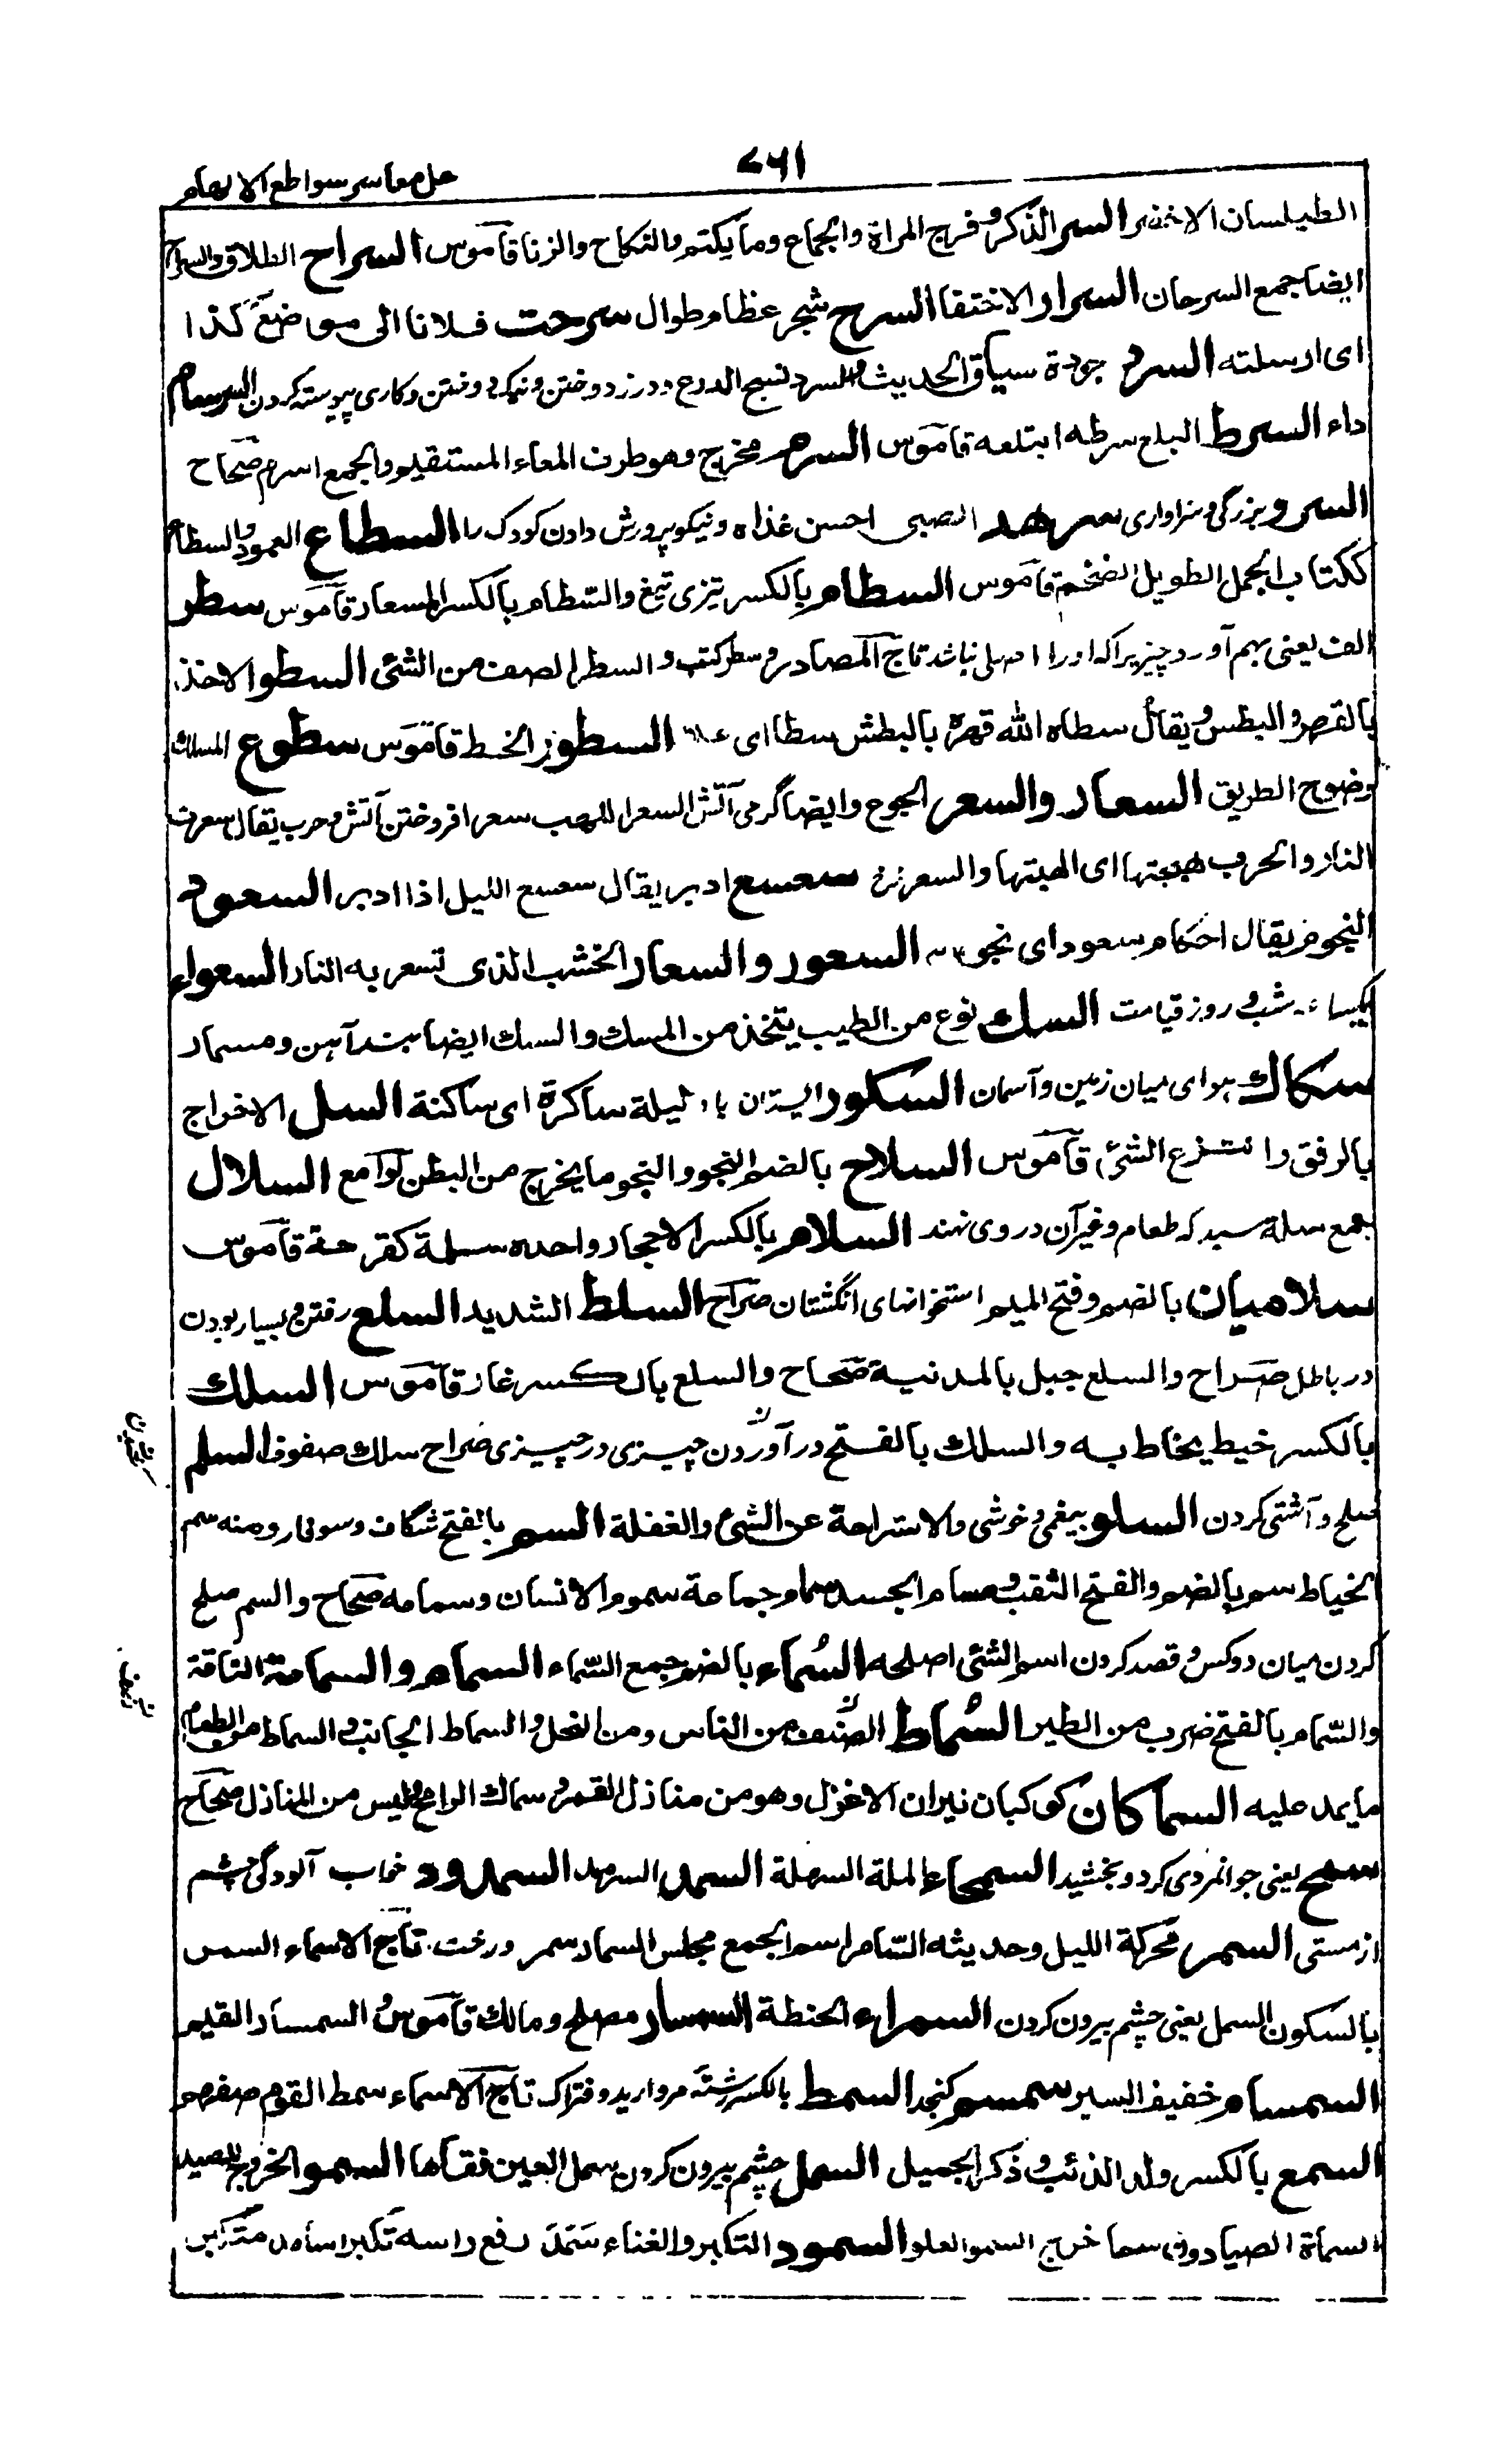 ۷۶۱
حل معاسر سواطع الالهام
الطیلسان الاخضر السر الذکر و فرج المراة والجماع وما یکتم والنکاح والزنا قاموس السراح الطلاق والسراح
ایضا جمع السرحان السرار الاختفا السرح شجر عظام طوال سرحت فلانا الی موضع کذا
ای ارسلته السرد جودة سیاق الحدیث والسرد نسج الدرع ودرز دوختن ونیکو رفتن وکاری پیوسته کردن السرسام
داء السرط البلع سرطه ابتلعه قاموس السرم مخرج وهو طرف المعاء المستقیم والجمع اسرم صحاح
السرو بزرگی وسزاواری سرهد الصبی احسن غذاه ونیکو پرورش دادن کودک را السطاع العمود والسطاع
ککتاب الجمل الطویل الضخم قاموس السطام بالکسر تیزی تیغ والسطام بالکسر المسعار قاموس سطر
الف یعنی بهم آورد چیزیرا که اورا اصلی نباشد تاج المصادر وسطر کتب والسطر الصف من الشئ السطو الاخذ
بالقهر والبطش ویقال سطاه الله قهره بالبطش سطا ای السطور الخط قاموس سطوع المسلک
وضوح الطریق السعار والسعر الجوع وایضا گرمی آتش السعر اللهب سعر افروختن آتش وحرب یقال سعرت
النار والحرب هیجتها ای الهبتها والسعر نرخ سعسع ادبر یقال سعسع اللیل اذا ادبر السعود
النجوم یقال احکام سعود ای نجوم السعور والسعار الخشب الذی تسعر به النار السعواء
شب و روز قیامت السک نوع من الطیب یتخذ من المسک والسک ایضا بند آهن ومسمار
سکاک هوای میان زمین وآسمان السکور ایستادن باد لیلة ساکرة ای ساکنة السل الاخراج
بالرفق وانتزع الشئ قاموس السلاح بالضم النجو والنجو ما یخرج من البطن لوامع السلال
جمع سلة سبد که طعام وغیرآن در وی نهند السلام بالکسر الاحجار واحده سلمة کفرحة قاموس
سلامیان بالضم وفتح المیم استخوانهای انگشتان صراح السلط الشدید السلع رفتن وبسیار بودن
در باطل صراح والسلع جبل بالمدنیة صحاح والسلع بالکسر غار قاموس السلک
بالکسر خیط یخاط به والسلک بالفتح درآوردن چیزی در چیزی صراح سلک صفوف السلم
صلح وآشتی کردن السلو بیغمی وخوشی والاستراحة عن الشئ والغفلة السم بالفتح شگاف وسوفار ومنه سم
الخیاط سم بالضم والفتح الثقب ومسام الجسد سمام جماعة سموم الانسان وسمامه صحاح والسم صلح
کردن میان دو کس وقصد کردن اسم الشئ اصلحه السُماء بالضم جمع السّماء السمام والسمامة الناقة
والسّمام بالفتح ضرب من الطیر السُماط الصنف من الناس ومن النخل والسماط الجانب والسماط من الطعام
ما یمد علیه السماکان کوکبان نیران الاعزل وهو من منازل القمر وسماک الرامح ولیس من المنازل صحاح
سمح یعنی جوانمردی کرد وبخشید السمحاء الملة السهلة السمد السرمد السمدود خواب آلودگی چشم
از مستی السمر محرکة اللیل وحدیثه السّامر اسم الجمع مجلس السمار سمر درخت تاج الاسماء السمل
بالسکون السمل یعنی چشم بیرون کردن السمراء الحنطة السمسار مصلح ومالک قاموس السمسار القیم
السمسام خفیف السیر سمسم کنجد السمط بالکسر رشته مروارید وفتراک تاج الاسماء سمط القوم صفهم
السمع بالکسر ولد الذئب وذکر الجمیل السمل چشم بیرون کردن سمل العین فقأها السمو الخروج للصید
السماة الصیادون سما خرج السمو العلو السمود التکبر والغناء سَمَدَ رفع راسه تکبرا سامد متکبر